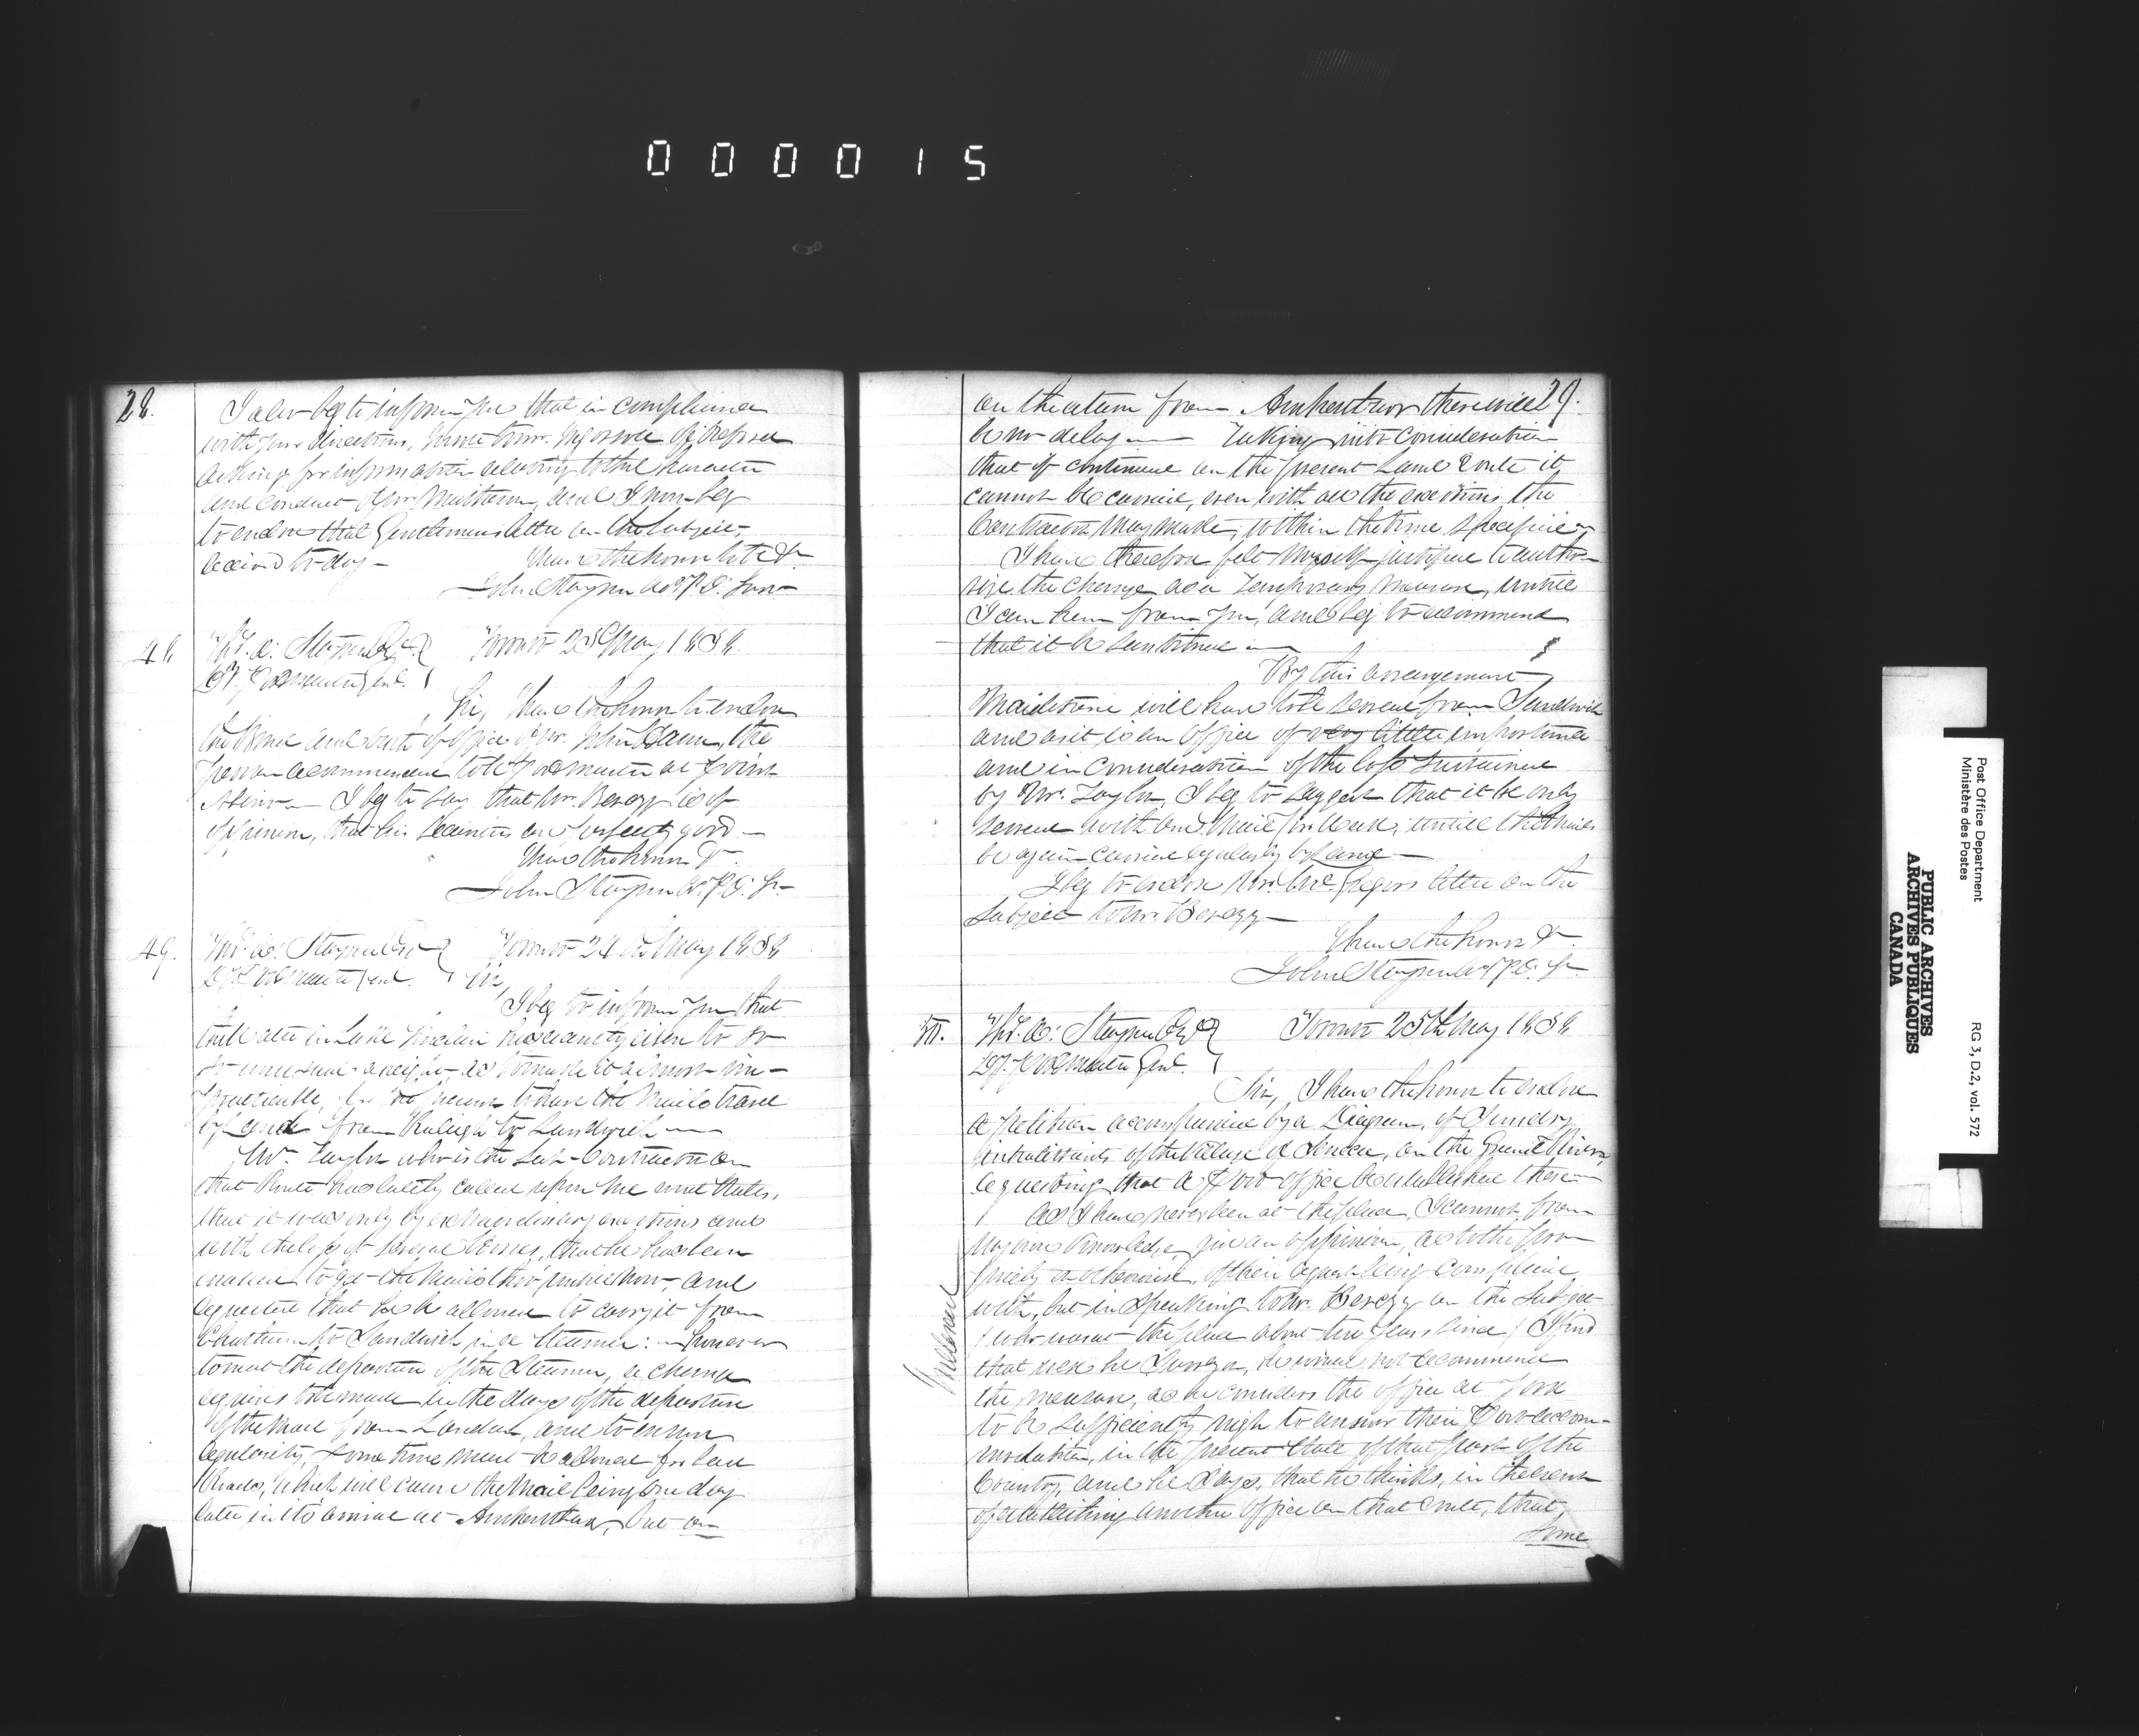 000015
28.
I also beg to inform you that in compliance
with your directions, I wrote to Mr. Ingersoll
asking for information relating to the character
and conduct of Mr. and I now beg
to enclose that Gentleman's letter on the subject,
received to-day —
I have the honor to be &c
John Stayner
48
Th. A. Stayner Esq
Dy. Postmaster Genl.
Toronto 23d May 1838.
Sir, I have the honor to enclose
the Bond and Oath of Office of Mr. John the
person recommended to be Postmaster at Point
Abino — I beg to say that Mr. Berczy is of
opinion, that his securities are perfectly good —
I have the honor &c.
John Stayner
49.
Th. A. Stayner Esq
Dy. Postmaster Genl.
Toronto 24th May 1838
Sir,
I beg to inform you that
the water in Lake has lately risen to so
unusual a height, as to make it almost im-
practicable, for the present to have the Mails travel
by land from Raleigh to Sandwich —
Mr. Taylor who is the Sub-Contractor on
that Route has lately called upon me and states,
that it was only by extraordinary exertions and
with the loss of several Horses, that he has been
enabled to get the Mails thro' until now, and
requested that he be allowed to carry it from
Chatham to Sandwich in a Steamer: — however
to meet the departure of the Steamer, a change
requires to be made in the days of the departure
of the Mail from London, and to ensure
regularity, some time must be allowed for bad
Roads, which will cause the Mail being one day
later in its arrival at Amherstburg, but on
29.
on the return from Amherstburg there will
be no delay — Taking into consideration
that if continued on the present Land Route it
cannot be carried, even with all the exertions the
Contractor may make, within the time specified,
I have therefore felt myself justified to autho-
rize the change as a temporary measure, until
I can hear from you, and beg to recommend
that it be sanctioned —
By this arrangement
Maidstone will have to be served from Sandwich
and as it is an Office of very little importance
and in consideration of the loss sustained
by Mr. Taylor, I beg to suggest that it be only
served with one Mail per week, until the Mails
be again carried regularly by Land —
I beg to enclose Mr. McGregors letter on the
subject to Mr. Berczy —
I have the honor &c.
John Stayner
50.
Th. A. Stayner Esq
Dy. Postmaster Genl.
Toronto 25th May 1838
Sir, I have the honor to enclose
a Petition accompanied by a Diagram, of Sundry
inhabitants of the Village of Seneca, on the Grand River,
requesting that a Post Office be established there —
As I have never been at the place, I cannot from
my own knowledge, give an opinion, as to the pro-
priety or otherwise, of their request being complied
with, but in speaking to Mr. Berczy on the subject
(who was at the place about two years since) I find
that were he Surveyor, he would not recommend
the measure, as he considers the office at York
to be sufficiently nigh to answer their Post accom-
modation, in the present state of that part of the
Country, and he says, that he thinks, in the event
of establishing another office on that route, that
some
Post Office Department
Ministère des Postes
RG 3, D.2, vol. 572
PUBLIC ARCHIVES
ARCHIVES PUBLIQUES
CANADA